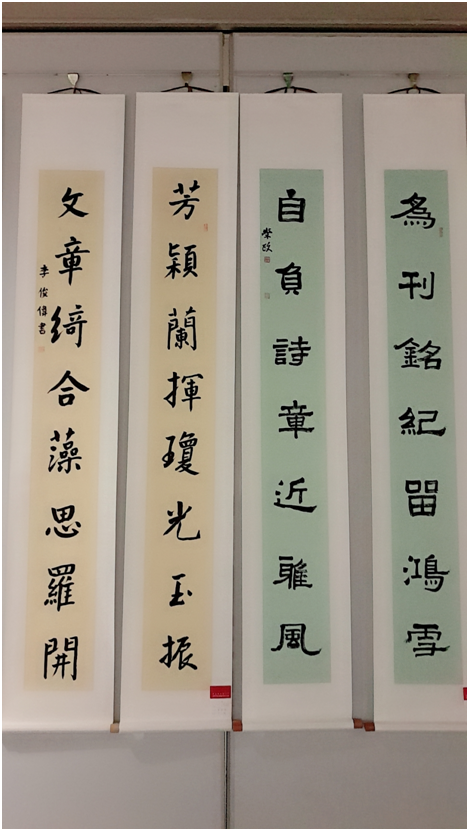 為刊銘紀留鴻雪
自負詩章近雅風
榮政
芳穎蘭揮瓊光玉振
文章綺合藻思羅開
李俊偉書